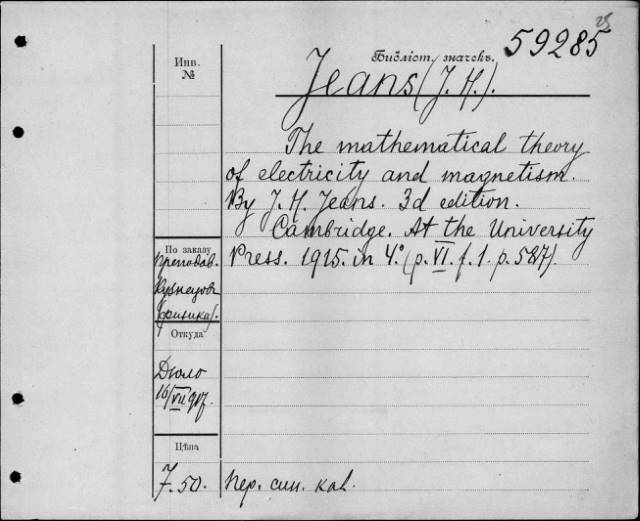 25
59285
Инв.
№
Библіот. значекъ.
Jeans (J. H.).
The mathematical theory
of electricity and magnetism.
By J. H. Jeans. 3d edition.
Cambridge. At the University
Press. 1915. in 4.° (p. VI. f. 1. p. 527).
По заказу
преподав.
Кузнецов
(физика).
Откуда
Дюло
16/VII 917.
Цѣна
7.50.
пер. син. кал.